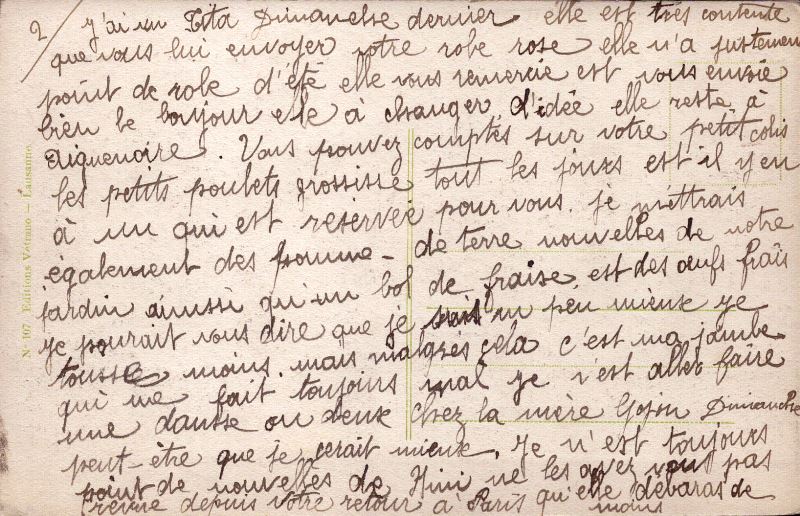 2
j'ai vu Tita Dimanche dernier elle est très contente
que vous lui envoyer votre robe rose elle n'a justement
point de robe d'été elle vous remercie est vous envoie
bien le bonjour elle à changer d'idée elle reste à
Aiguenoire. Vous pouvez comptés sur votre petit colis
les petits poulets grossisse tout les jours est il y en
à un qui est reservée pour vous. je mettrais
également des pomme-de terre nouvelles de notre
jardin aussi qu'un bol de fraise est des œufs frais
je pourait vous dire que je suis un peu mieux je
tousse moins. mais malgres cela c'est ma jambe
qui me fait toujours mal je n'est aller faire
une dansse ou deux chez la mère Gojon Dimanche
peut-être que je serait mieux. Je n'est toujours
point de nouvelles de Nini ne les avez vous pas
revue depuis votre retour à Paris qu'elle débaras de
moins
N° 107 Editions Vetrano — Lausanne